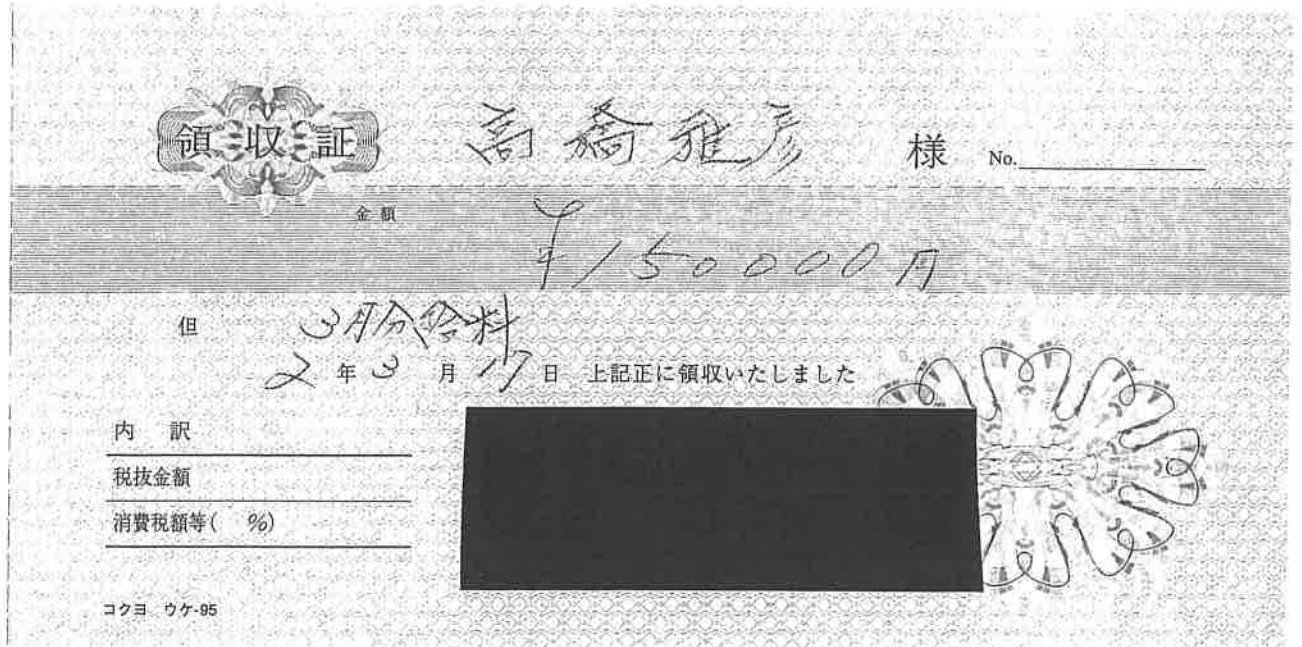 領収証 高橋雅彦 様 No.
金額 ¥150000円
但 3月分給料
2年3月17日 上記正に領収いたしました
内訳
税抜金額
消費税額等( %)
コクヨ ウケ-95